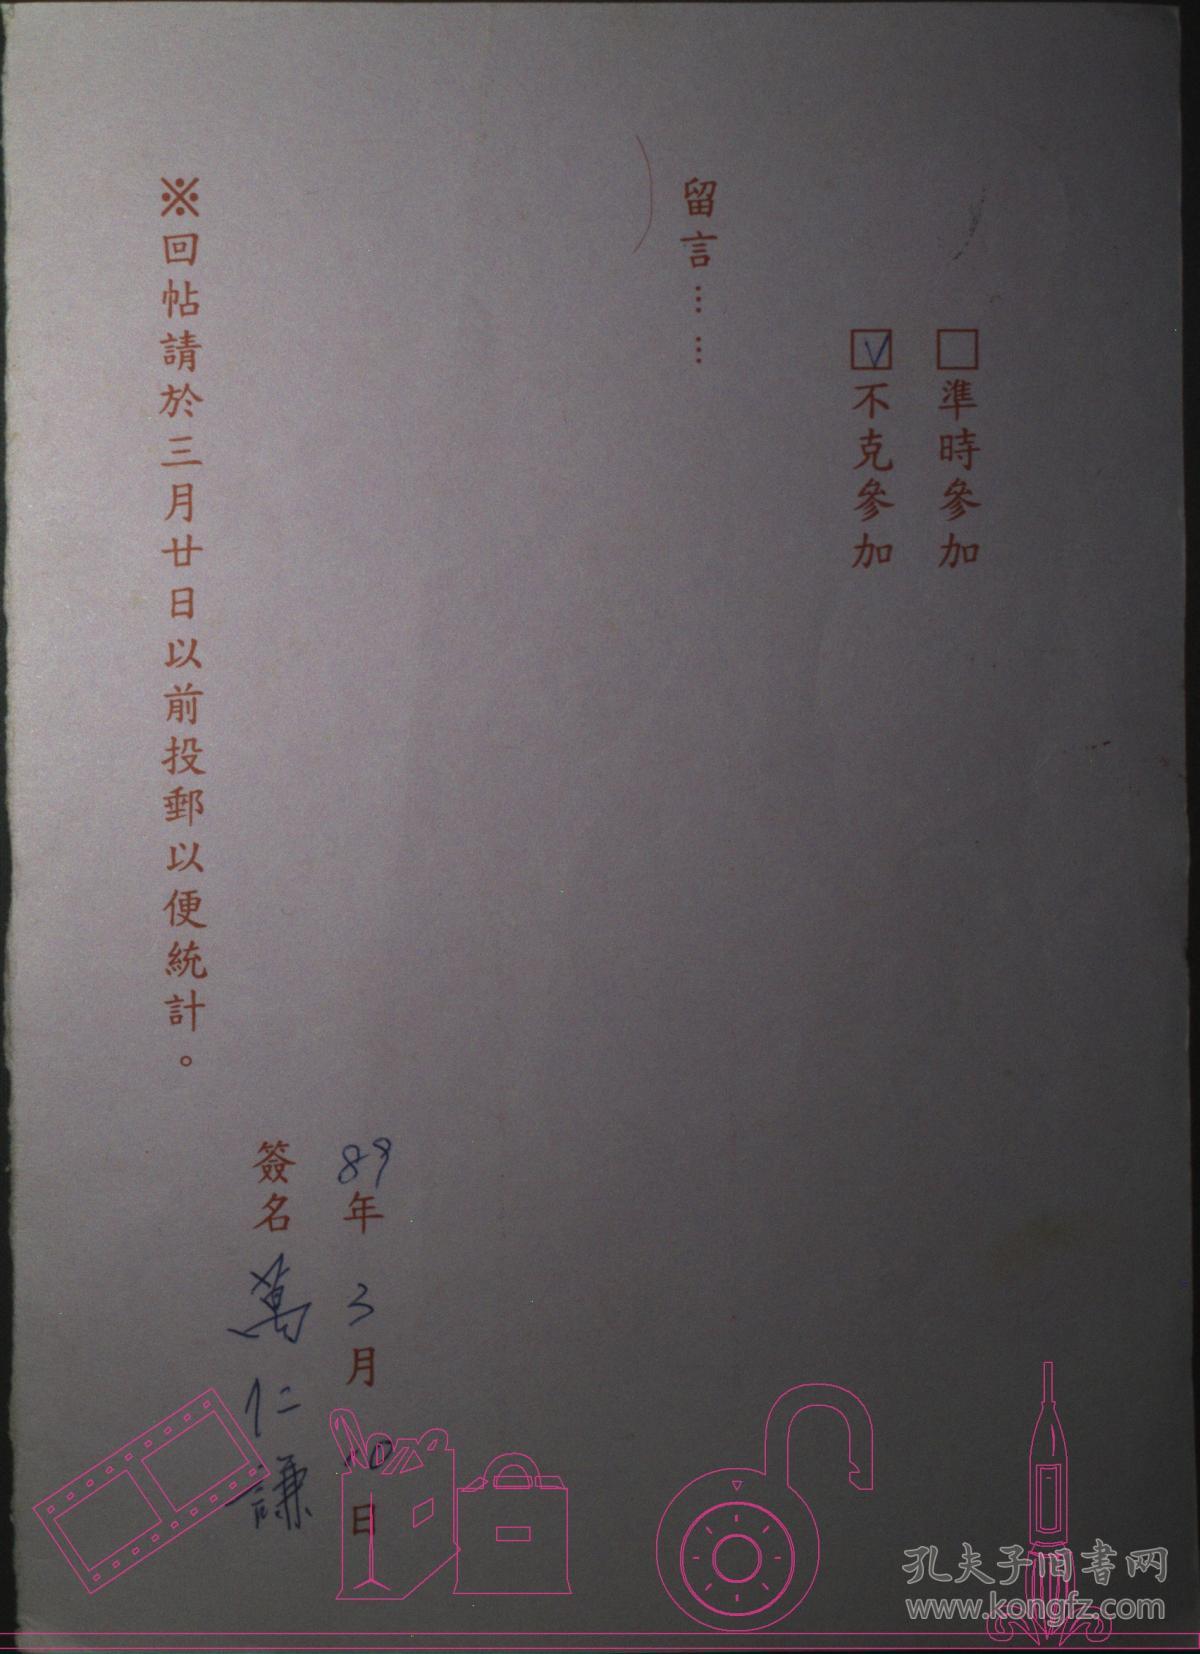 □準時參加
☑不克參加
留言……
89年3月10日
簽名 萬仁謙
※回帖請於三月廿日以前投郵以便統計。
孔夫子旧書网
www.kongfz.com